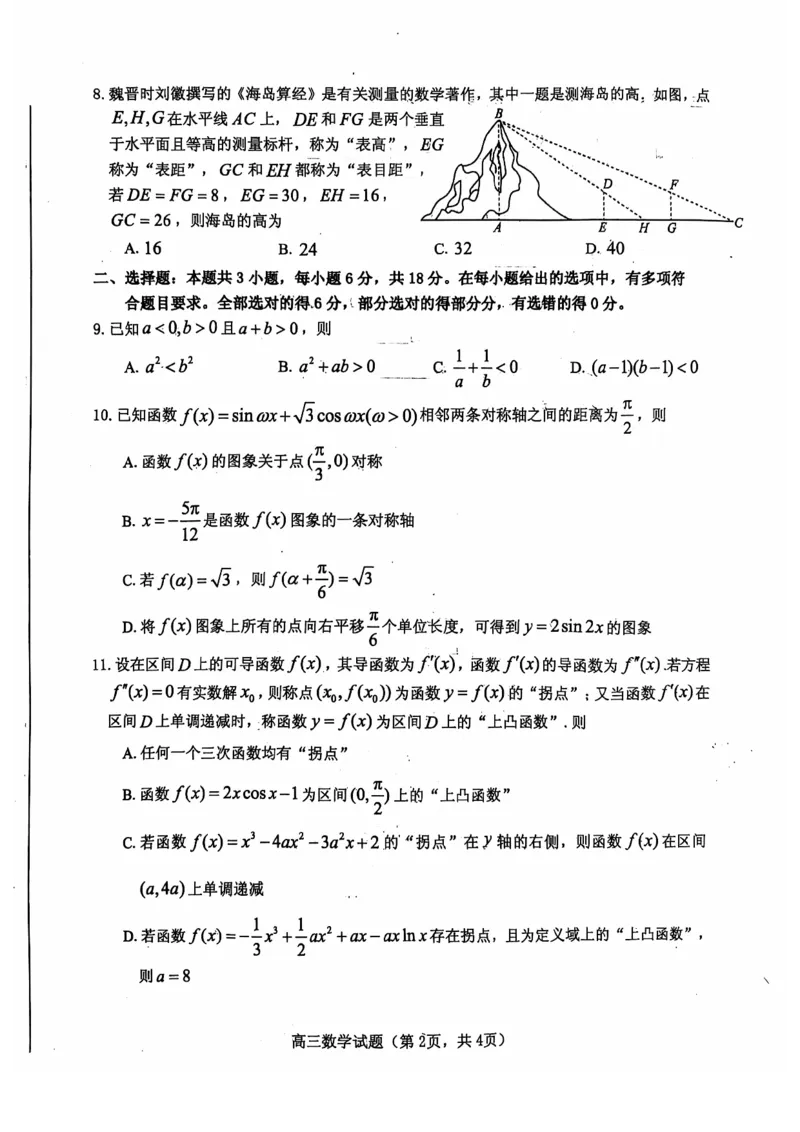 8. 魏晋时刘徽撰写的《海岛算经》是有关测量的数学著作，其中一题是测海岛的高. 如图，点
E,H,G在水平线AC上，DE和FG是两个垂直
于水平面且等高的测量标杆，称为“表高”，EG
称为“表距”，GC和EH都称为“表目距”，
若DE=FG=8，EG=30，EH=16，
GC=26，则海岛的高为
B
D
F
A
E
H
G
C
A. 16 B. 24 C. 32 D. 40
二、选择题：本题共3小题，每小题6分，共18分。在每小题给出的选项中，有多项符
合题目要求。全部选对的得6分，部分选对的得部分分，有选错的得0分。
9. 已知a<0,b>0且a+b>0，则
A. a²<b² B. a²+ab>0 C. 1/a+1/b<0 D. (a−1)(b−1)<0
10. 已知函数f(x)=sinωx+√3cosωx(ω>0)相邻两条对称轴之间的距离为π/2，则
A. 函数f(x)的图象关于点(π/3,0)对称
B. x=−5π/12是函数f(x)图象的一条对称轴
C. 若f(α)=√3，则f(α+π/6)=√3
D. 将f(x)图象上所有的点向右平移π/6个单位长度，可得到y=2sin2x的图象
11. 设在区间D上的可导函数f(x)，其导函数为f′(x)，函数f′(x)的导函数为f″(x).若方程
f″(x)=0有实数解x₀，则称点(x₀,f(x₀))为函数y=f(x)的“拐点”；又当函数f′(x)在
区间D上单调递减时，称函数y=f(x)为区间D上的“上凸函数”. 则
A. 任何一个三次函数均有“拐点”
B. 函数f(x)=2xcosx−1为区间(0,π/2)上的“上凸函数”
C. 若函数f(x)=x³−4ax²−3a²x+2的“拐点”在y轴的右侧，则函数f(x)在区间
(a,4a)上单调递减
D. 若函数f(x)=−1/3x³+1/2ax²+ax−axlnx存在拐点，且为定义域上的“上凸函数”，
则a=8
高三数学试题（第2页，共4页）